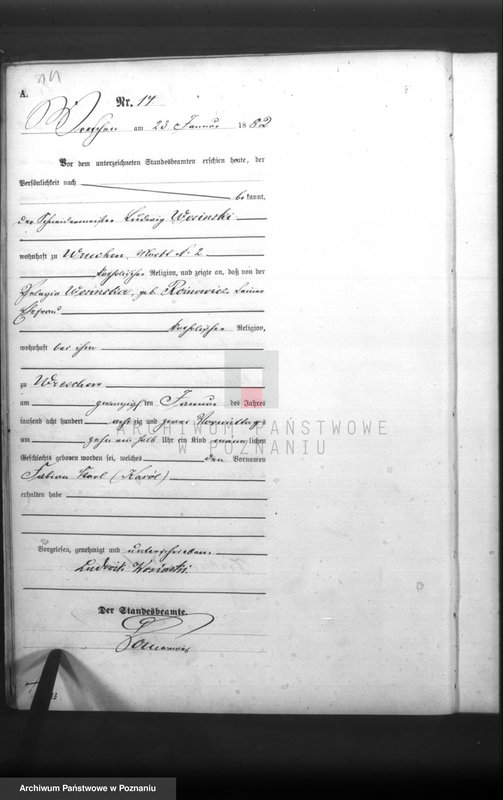 A.
Nr. 14
Wreschen am 23 Januar 1882
Vor dem unterzeichneten Standesbeamten erschien heute, der
Persönlichkeit nach
bekannt,
der Schneidermeister Ludwig
wohnhaft zu Wreschen, Markt
katholischer Religion, und zeigte an, daß von der
Pelagia geb. seiner
Ehefrau
katholischer Religion,
wohnhaft bei ihm
zu Wreschen
am zwanzigsten Januar des Jahres
tausend acht hundert acht zig und zwei Vormittags
um zehn ein halb Uhr ein Kind männlichen
Geschlechts geboren worden sei, welches den Vornamen
Fabian Karl (Karól)
erhalten habe
Vorgelesen, genehmigt und unterschrieben.
Ludwik
Der Standesbeamte.
ARCHIWUM PAŃSTWOWE
W POZNANIU
Archiwum Państwowe w Poznaniu